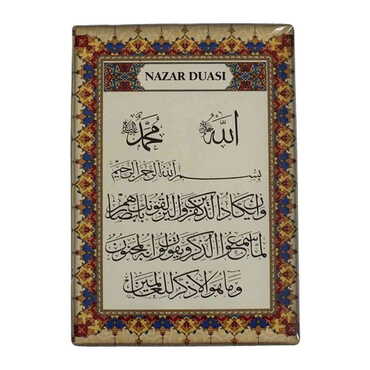 NAZAR DUASI
الله محمد
بسم الله الرحمن الرحيم
وان يكاد الذين كفروا ليزلقونك بابصارهم
لما سمعوا الذكر ويقولون انه لمجنون
وما هو الا ذكر للعالمين